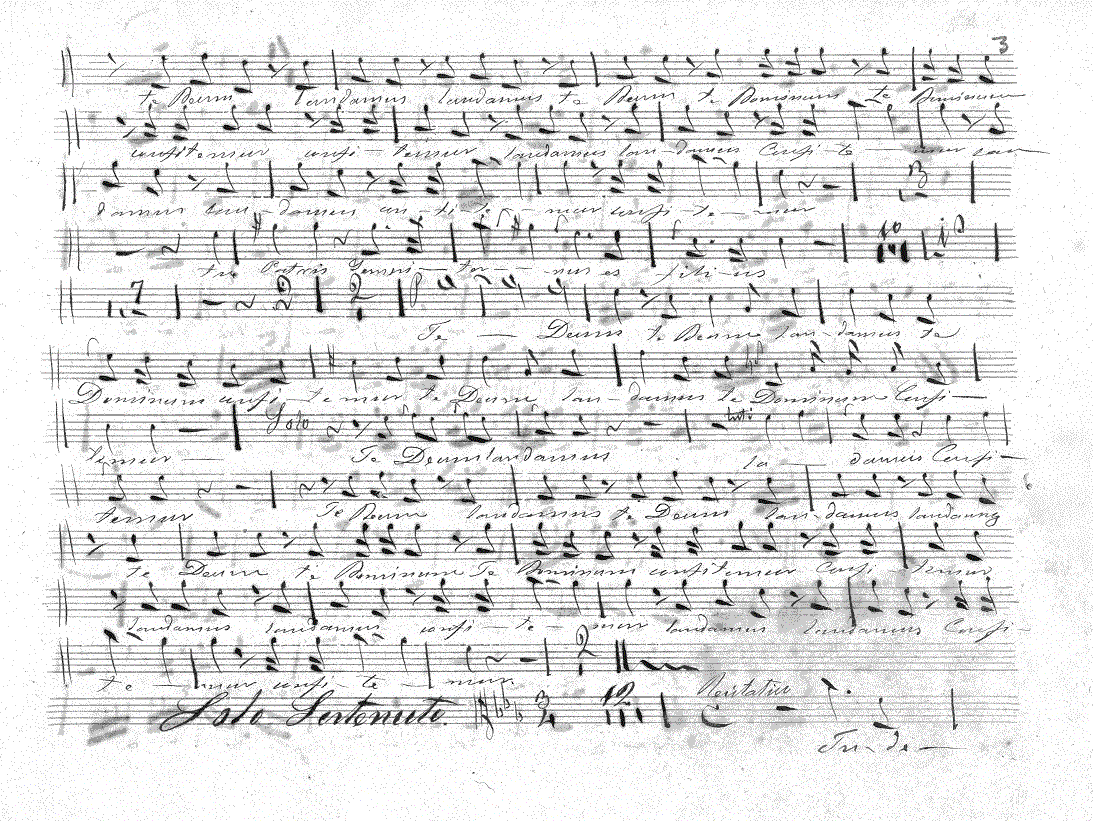 3
te Deum laudamus laudamus te Deum te Dominum te Dominum
confitemur confi - temur laudamus lau - damus Confi - te - mur lau
damus lau - damus confi - te - mur confi - te - mur
3
tu Patris Sempi - ter - nus es fili - us
10
7 2 2
Te - Deum te Deum lau - damus te
Dominum confi - temur te Deum lau - damus te Dominum Confi -
Solo tutti
temur - Te Deum laudamus la - damus Confi -
temur Te Deum laudamus te Deum lau - damus laudamus
te Deum te Dominum Te Dominum confitemur Confi - temur
laudamus laudamus confi - te - mur laudamus laudamus Confi -
2
te - mur confi - te - mur
Solo Sostenuto. 3 4 12 Recitativo
Tu - de -